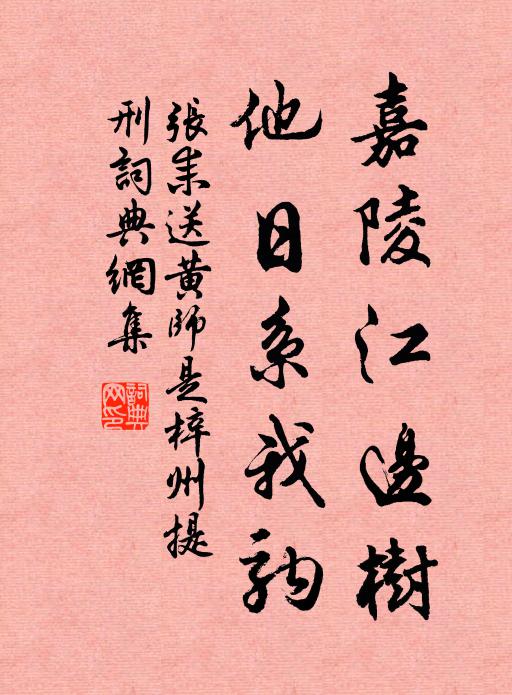 嘉陵江邊樹
他日系我駒
張耒送黄師是梓州提
刑詞典網集
詞典
网印